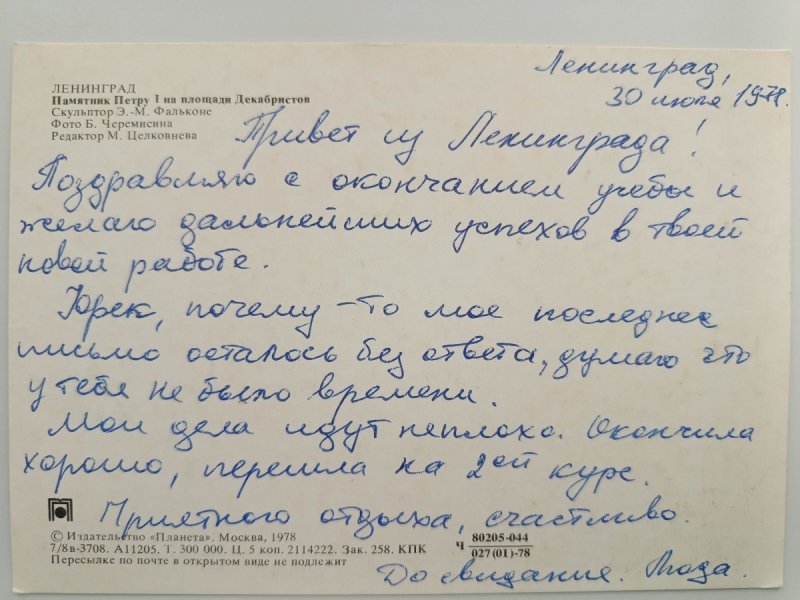 ЛЕНИНГРАД
Памятник Петру I на площади Декабристов
Скульптор Э.-М. Фальконе
Фото Б. Черемисина
Редактор М. Целковнева
Ленинград,
30 июля 1978.
Привет из Ленинграда!
Поздравляю с окончанием учебы и
желаю дальнейших успехов в твоей
новой работе.
Юрек, почему-то мое последнее
письмо осталось без ответа, думаю что
у тебя не было времени.
Мои дела идут неплохо. Окончила
хорошо, перешла на 2ой курс.
Приятного отдыха, счастливо.
© Издательство «Планета». Москва, 1978
7/8в-3708. А11205. Т. 300 000. Ц. 5 коп. 2114222. Зак. 258. КПК
Пересылке по почте в открытом виде не подлежит
Ч 80205-044
027(01)-78
До свидания. Люда.